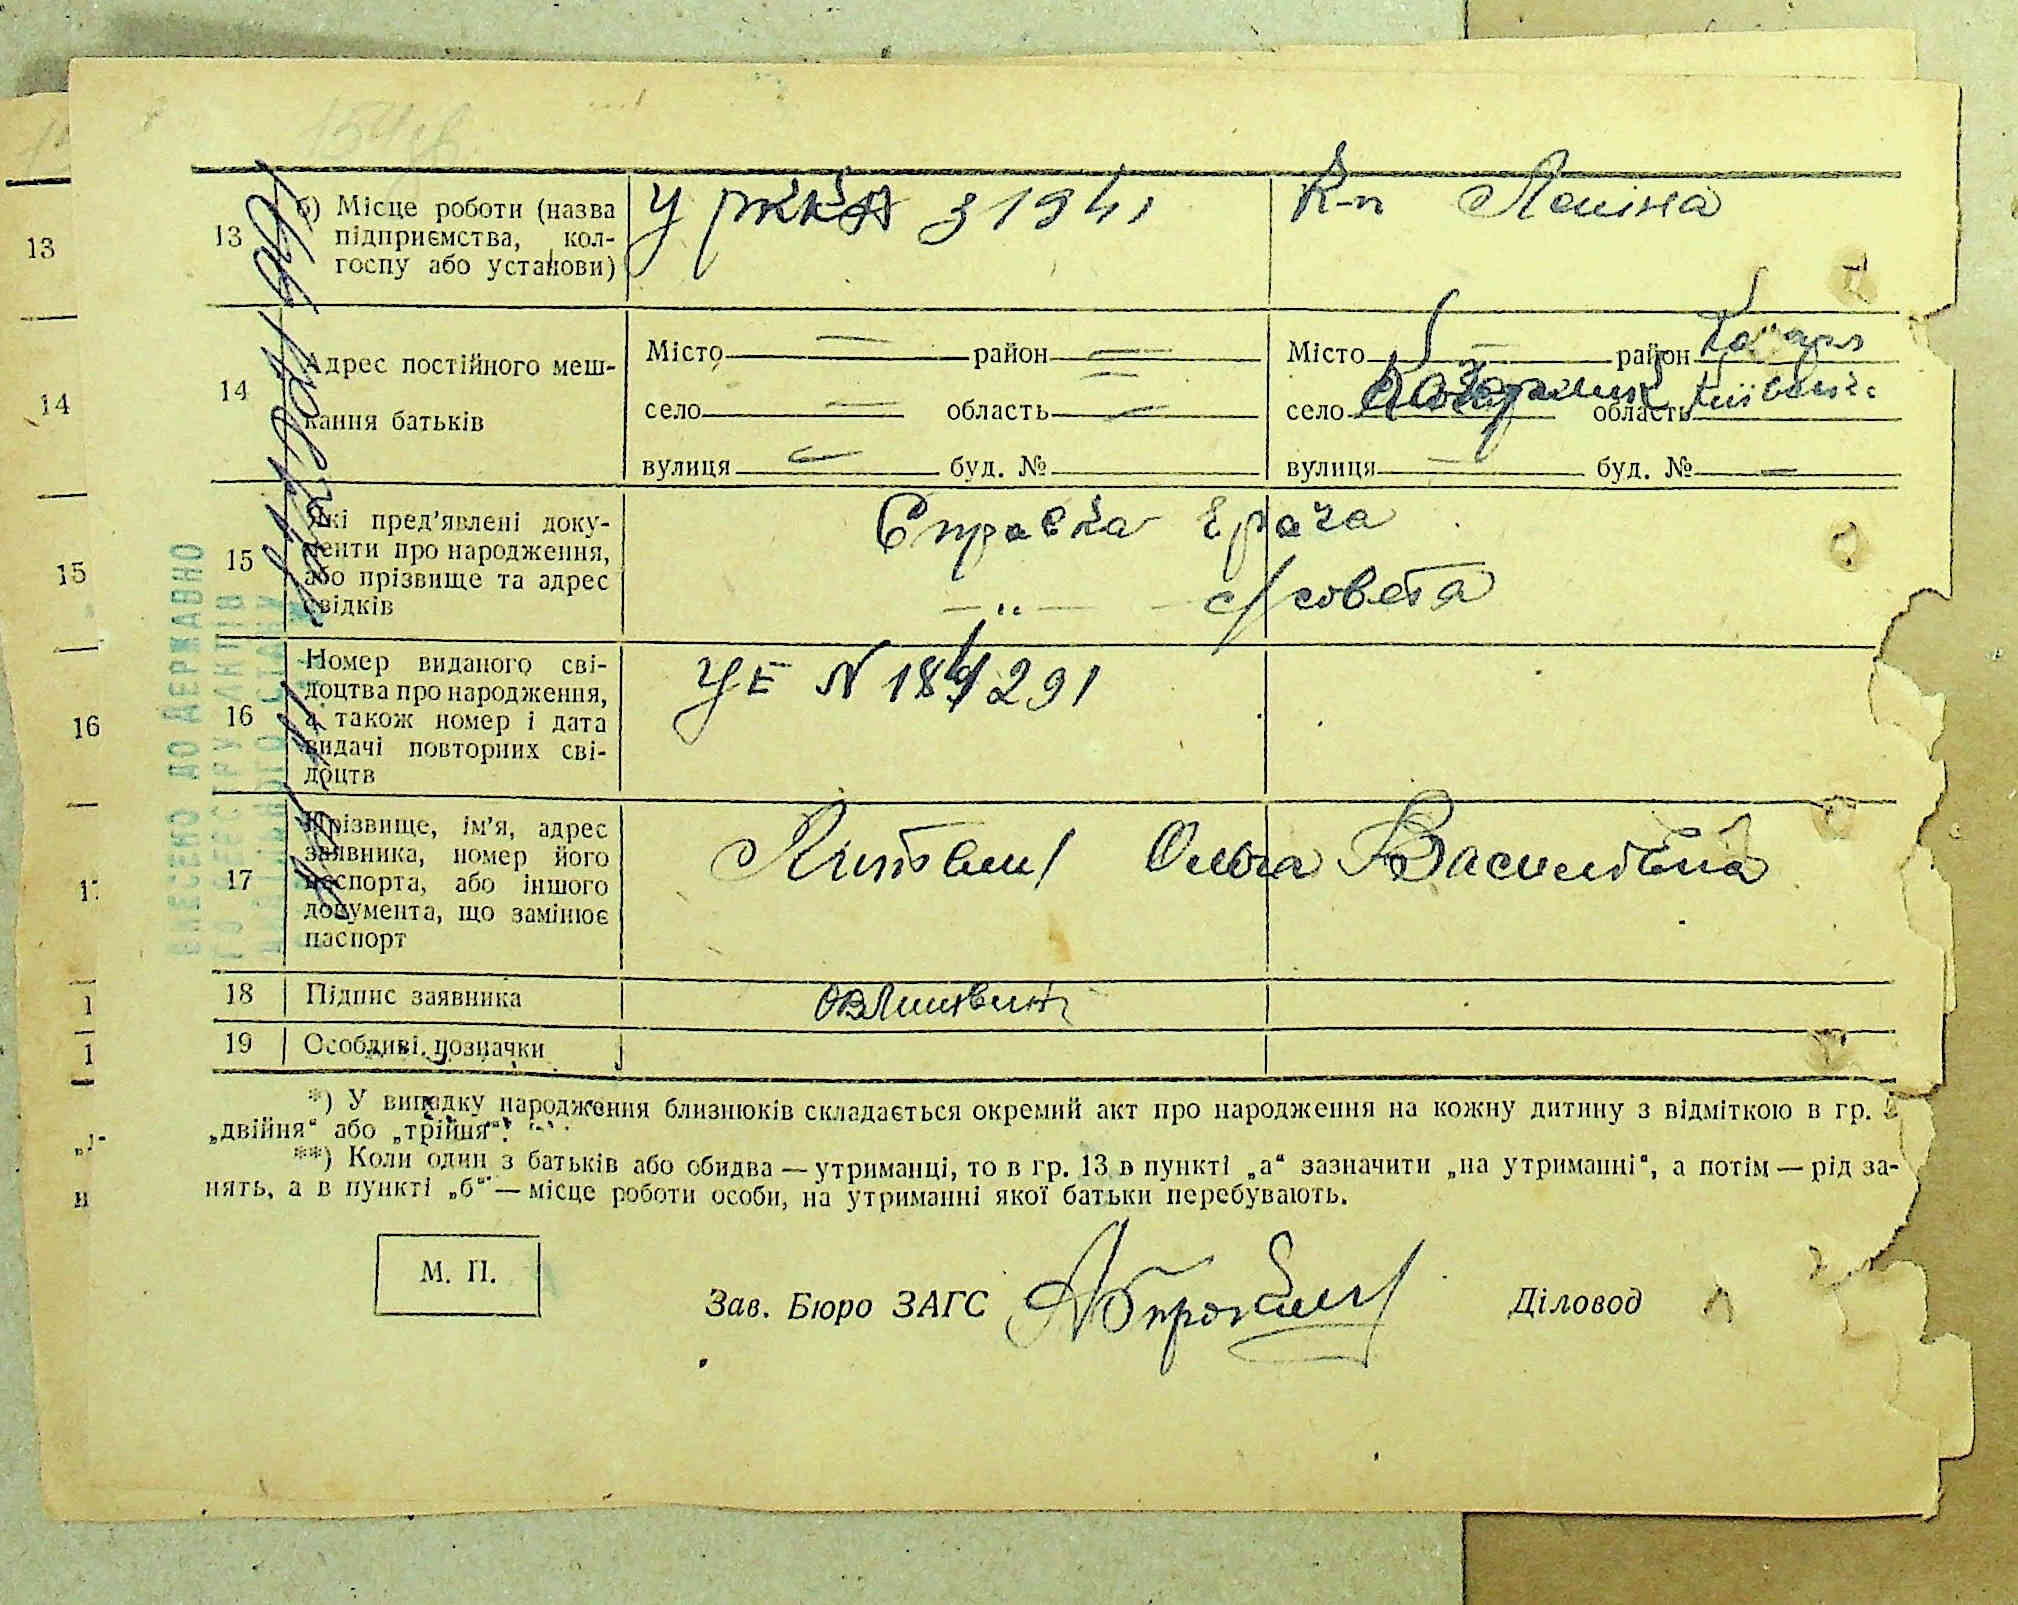 13 13 б) Місце роботи (назва підприємства, кол-госпу або установи) У РККА з 1941 К-п Леніна
14 14 Адрес постійного меш-кання батьків
Місто район Місто район Кагарл
село область село Кагарлик область Київська
вулиця буд. № вулиця буд. №
15 15 Які пред'явлені доку-менти про народження, або прізвище та адрес свідків
Справка врача
—„— с/совета
16 16 Номер виданого сві-доцтва про народження, а також номер і дата видачі повторних сві-доцтв
УЕ N 184291
17 17 Прізвище, ім'я, адрес заявника, номер його паспорта, або іншого документа, що замінює паспорт
Литвин Ольга Василівна
18 Підпис заявника ОВЛитвин
19 Особливі позначки
*) У випадку народження близнюків складається окремий акт про народження на кожну дитину з відміткою в гр.
„двійня“ або „трійня“.
**) Коли один з батьків або обидва — утриманці, то в гр. 13 в пункті „а“ зазначити „на утриманні“, а потім — рід за-
нять, а в пункті „б“ — місце роботи особи, на утриманні якої батьки перебувають.
М. П.
Зав. Бюро ЗАГС Діловод
ВНЕСЕНО ДО ДЕРЖАВНО
ГО РЕЄСТРУ АКТІВ
ЦИВІЛЬНОГО СТАНУ